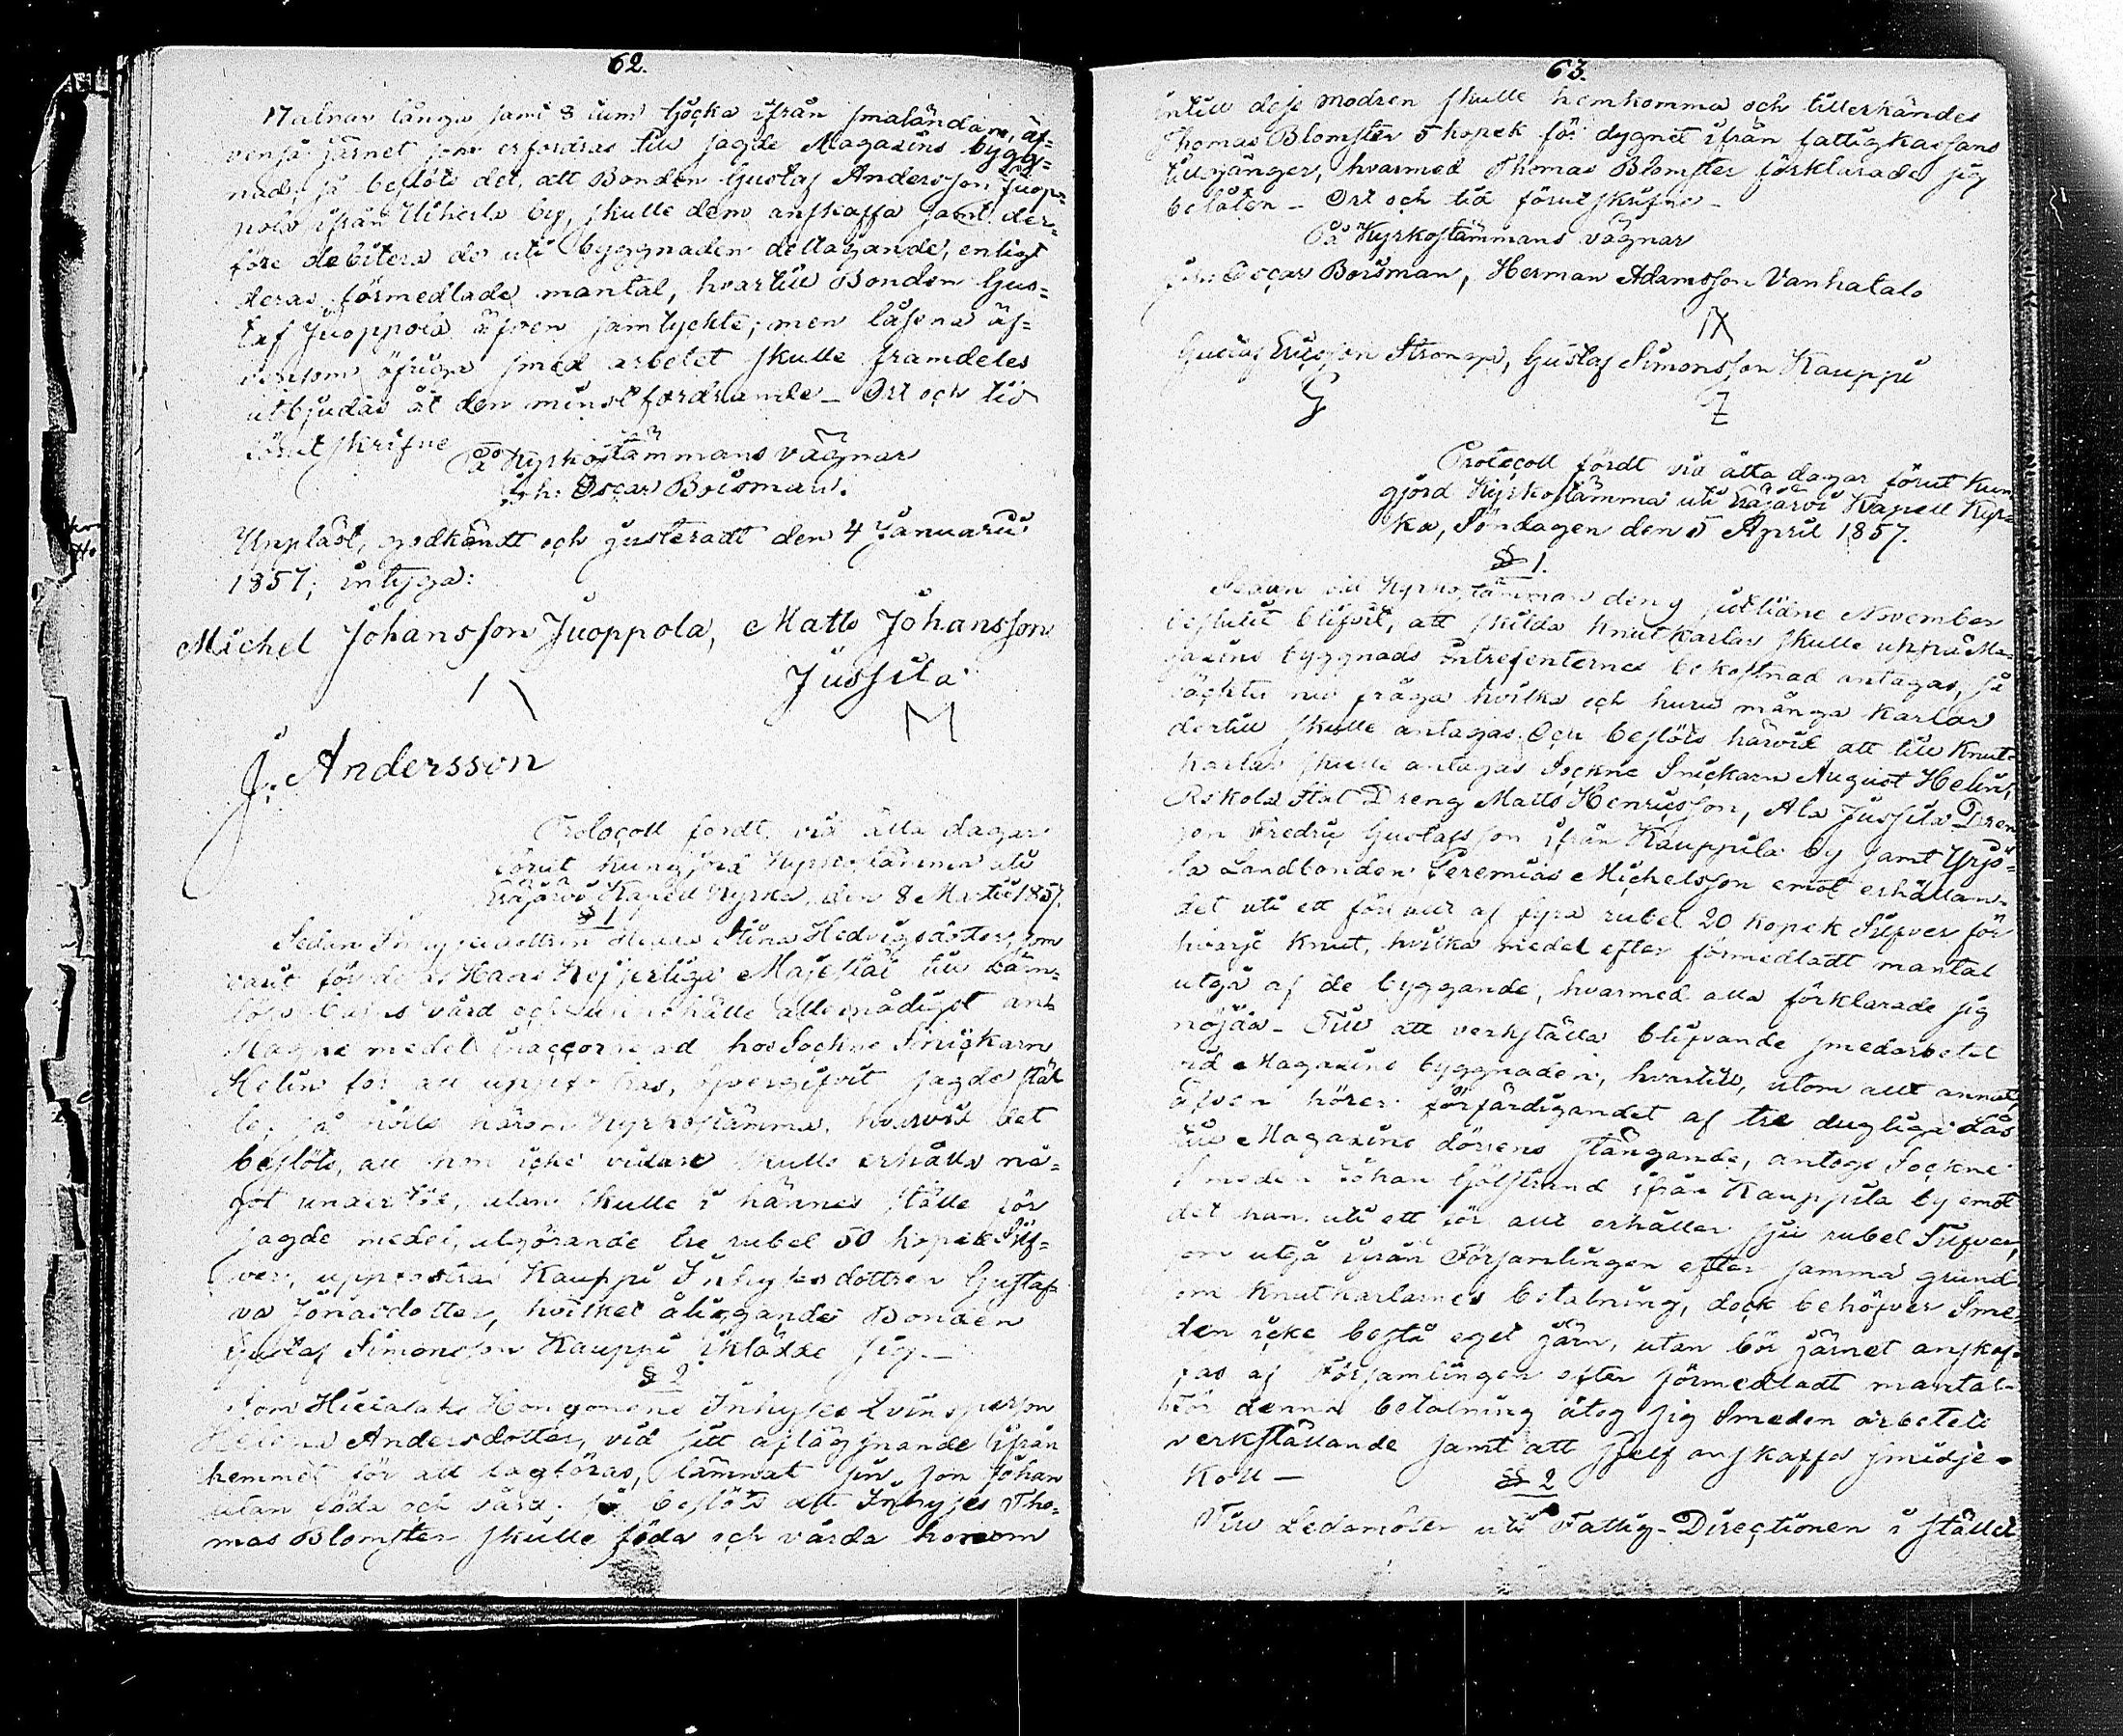 62.
17 alnar långa samt 8 tum tjocka ifrån smaländan, äf-
venså järnet som erfordras till sagde Magazins bygg-
nad, så beslöts det, att Bonden Gustaf Andersson Juop-
pola ifrån Uiherla by, skulle dem anskaffa samt der-
före debitera de uti byggnaden deltagande, enligt
deras förmedlade mantal, hvartill Bonden Gus-
taf Juoppola äfven samtyckte; men låsena äf-
vensom öfriga smed arbetet skulle framdeles
utbjudas åt den minst fordrande _ Ort och tid
förut skrifne
På Kyrkostämmans vägnar
Joh: Oscar Boisman.
Uppläst, godkändt och justeradt den 4 Januarii
1857; intyga:
Michel Johansson Juoppola, Matts Johansson
Jussila
M
J: Andersson
Protocoll fördt vid åtta dagar
förut kungjord Kyrkostämma uti
Kapell Kyrka, den 8 Martii 1857.
§ 1
Sedan Inhysesdottren Stina Hedvigsdotter, som
varit för de af Hans Kejserliga Majestät till värn-
lösa barns vård och underhålle allernådigst an-
slagne medel inaccorderad hos Sockne Snickarn
Helin för att uppfostras, öfvergifvit sagde stäl-
le, så hölls härom Kyrkostämma, hvarvid det
beslöts, att hon icke vidare skulle erhålla nå-
got understöd, utan skulle i hännes ställe för
sagde medel, utgörande tre rubel 50 kopek Silf-
ver, uppfostras Kauppi Inhyses dottren Gustaf-
va Jonasdotter, hvilket åliggande Bonden
Gustaf Simonsson Kauppi iklädde sig._
§ 2
Som Inhyses Qvinsperson
Helena Andersdotter, vid sitt aflägsnande ifrån
hemmet för att lagföras, lämnat sin son Johan
utan föda och vård. så beslöts att Inhyses Tho-
mas Blomster skulle föda och vårda honom
63.
intill dess modren skulle hemkomma och tillerkändes
Thomas Blomster 5 kopek för dygnet ifrån fattigkassans
tillgånger, hvarmed Thomas Blomster förklarade sig
belåten _ Ort och tid förut skrifne _
På Kyrkostämmans vägnar
Joh: Oscar Boisman, Herman Adamsson Vanhatalo
Gustaf Ericsson Gustaf Simonsson Kauppi
Protocoll fördt vid åtta dagar förut kun-
gjord Kyrkostämma uti Kapell Kyr-
ka, Söndagen den 5 April 1857.
§ 1.
Sedan vid Kyrkostämman den 9 sistlidne November
beslutit blifvit, att skilda Knutkarlar skulle uppå Ma-
gazins byggnads intressenternes bekostnad antagas, så
väcktes nu fråga hvilka och huru många karlar
dertill skulle antagas. Och beslöts härvid att till Knut-
karlar skulle antagas Sockne Snickarn August Helin,
Rekola Stat Dreng Matts Henricsson, Ala Jussila Dren-
gen Fredric Gustafsson ifrån Kauppila by samt Yrjö-
la Landbonden Jeremias Michelsson emot erhållan-
det uti ett för allt af fyra rubel 20 kopek Silfver för
hvarje Knut, hvilka medel efter förmedladt mantal
utgå af de byggande, hvarmed alla förklarade sig
nöjda _ Till att verkställa blifvande smedarbetet
vid Magazins byggnaden, hvartill, utom allt annat,
äfven hörer förfärdigandet af tre dugliga Lås
till Magazins dörrens stängande, antogs Sockne
Smeden Johan ifrån Kauppila by emot
det han uti ett för allt erhåller sju rubel Silfver,
som utgå ifrån Församlingen efter samma grund
som Knutkarlarnes betalning, dock behöfver Sme-
den icke bestå eget järn, utan bör järnet anskaf-
fas af Församlingen efter förmedladt mantal.
För denna betalning åtog sig Smeden arbetets
verkställande samt att sjelf anskaffa smidje-
kol _
§ 2
Till Ledamöter uti Fattig-Directionen i stället